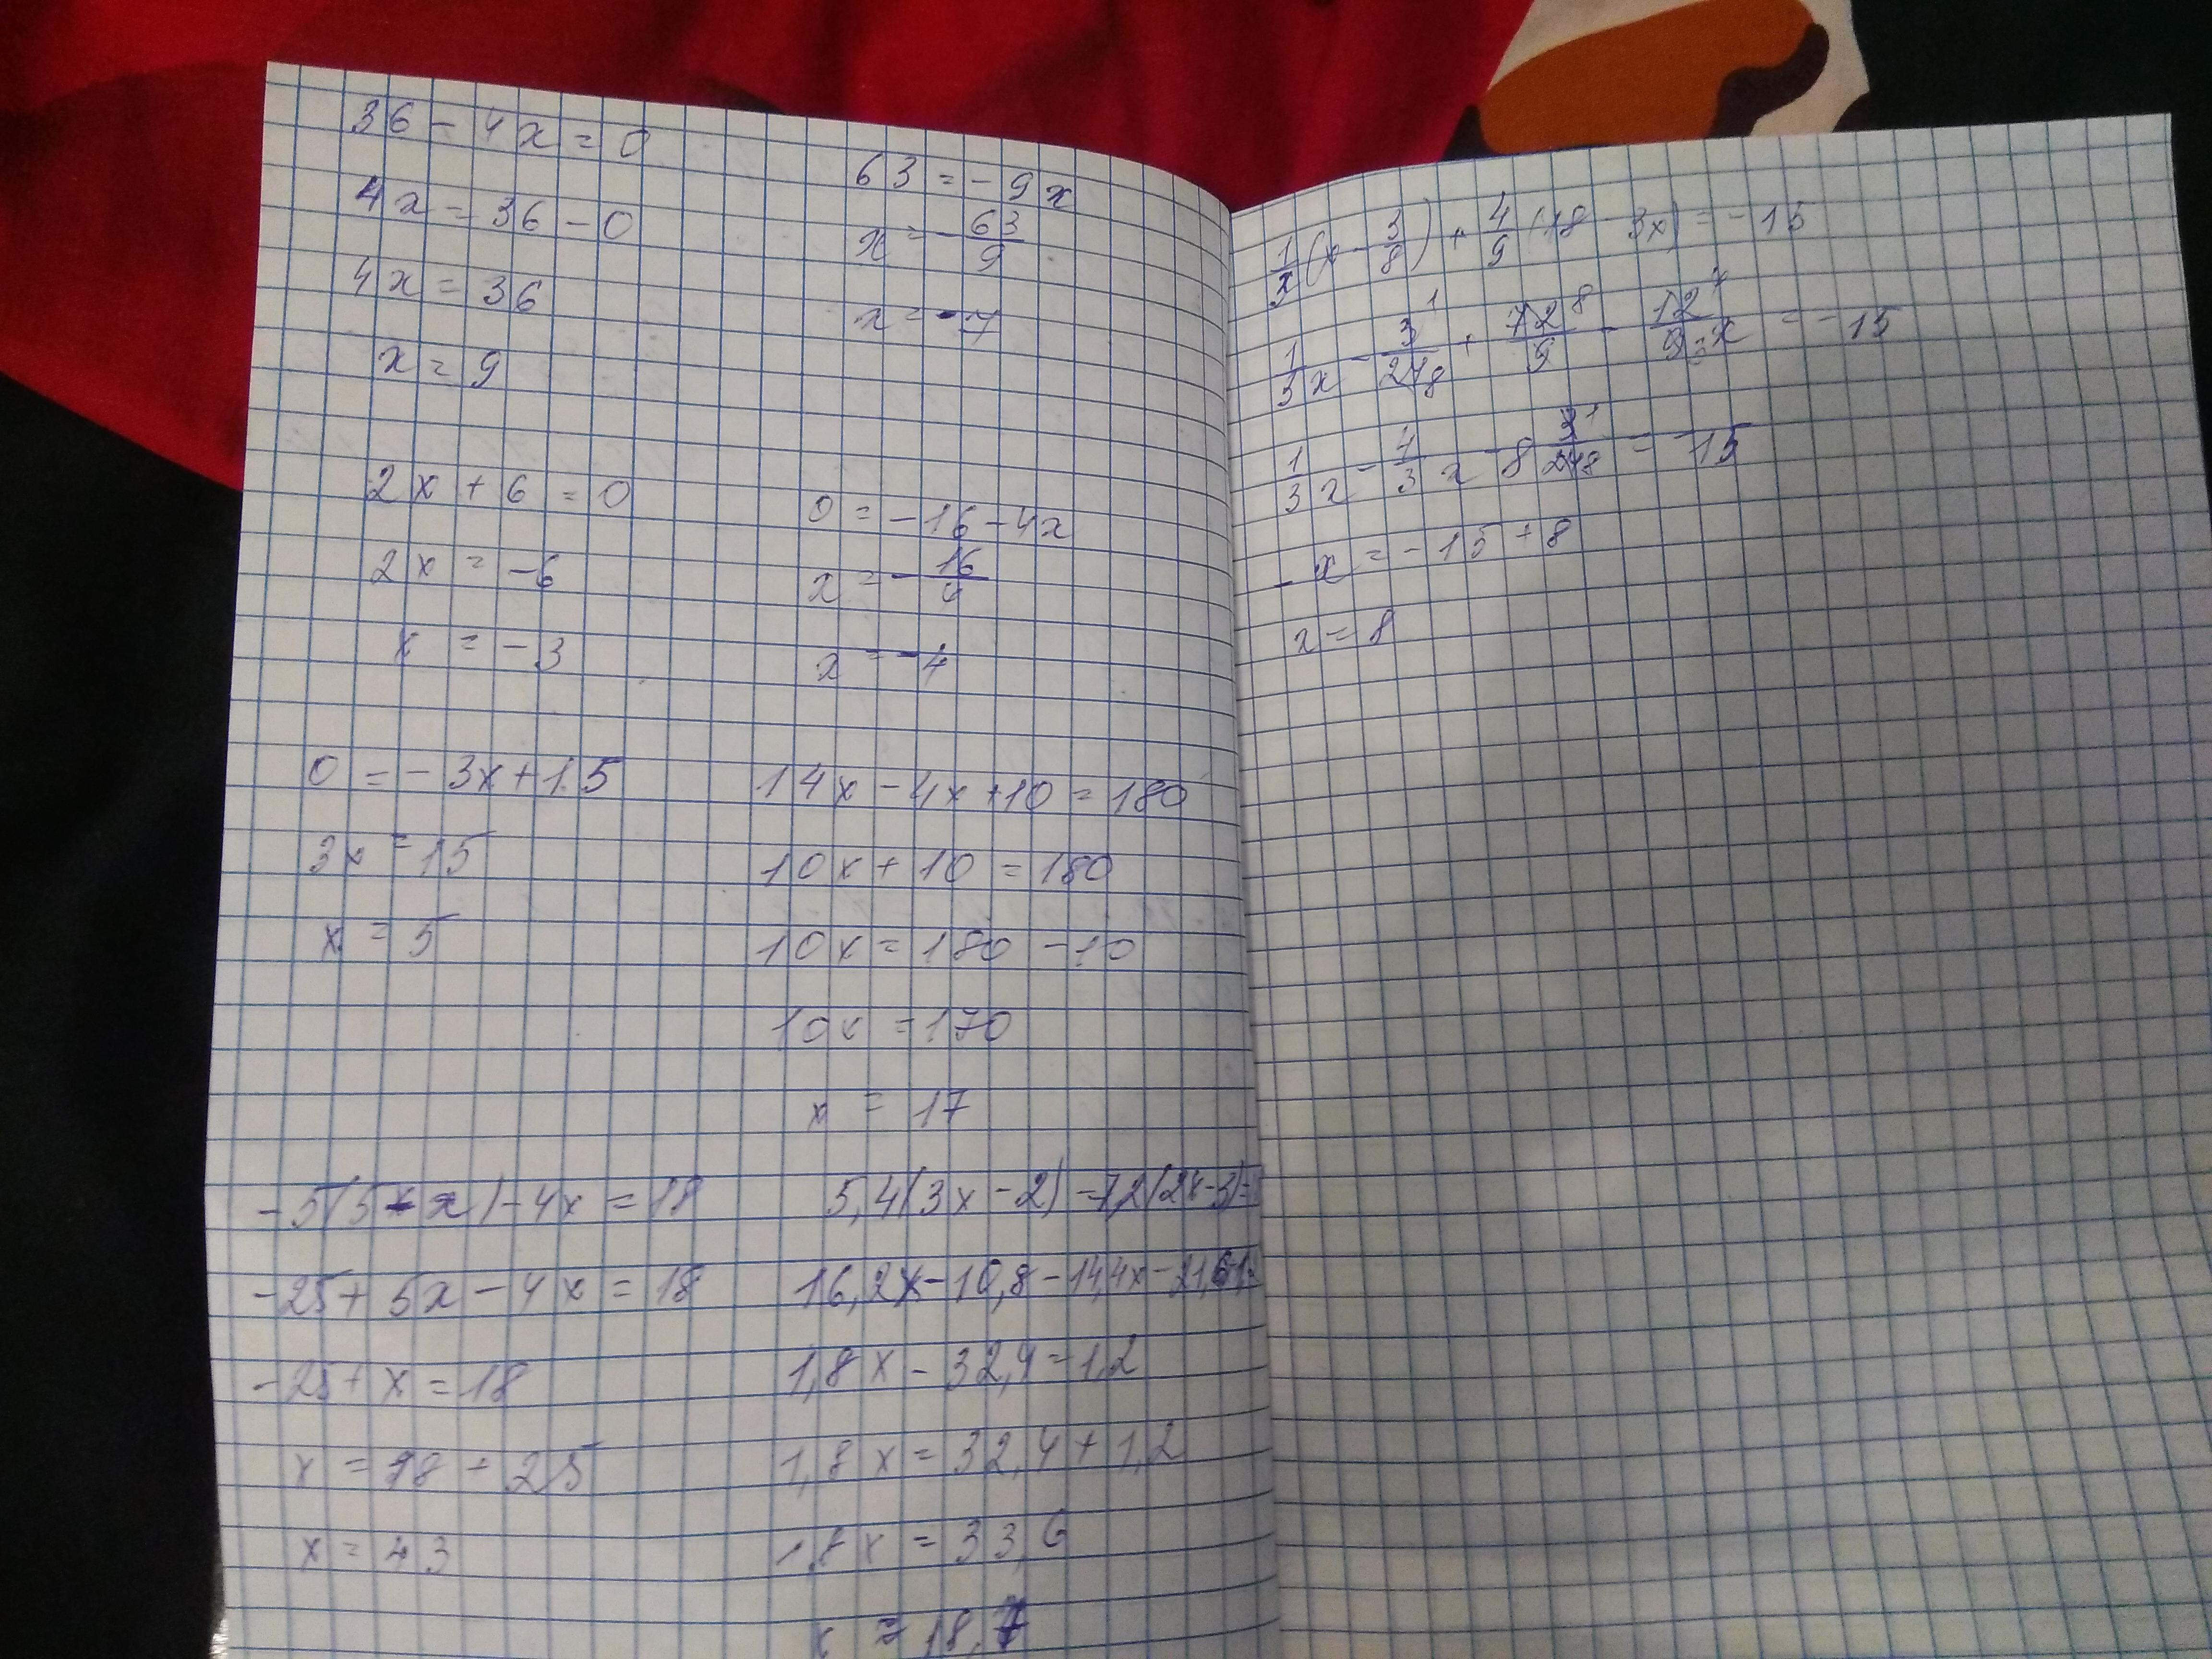 36 - 4x = 0
4x = 36 - 0
4x = 36
x = 9
63 = -9x
x = -63/9
x = -7
2x + 6 = 0
2x = -6
x = -3
0 = -16 - 4x
x = -16/4
x = -4
0 = -3x + 15
3x = 15
x = 5
14x - 4x + 10 = 180
10x + 10 = 180
10x = 180 - 10
10x = 170
x = 17
-5(5 - x) - 4x = 18
-25 + 5x - 4x = 18
-25 + x = 18
x = 18 + 25
x = 43
5,4(3x - 2) - 7,2(2x - 3) =
16,2x - 10,8 - 14,4x - 21,6
1,8x - 32,4 = 1,2
1,8x = 32,4 + 1,2
1,8x = 33,6
x = 18,7
1/3(x - 3/8) + 4/9(18 - 3x) = -15
1/3x - 3/24 + 72/9 - 12/9x = -15
1/3x - 4/3x - 8 3/24 = -15
-x = -15 + 8
x = 8